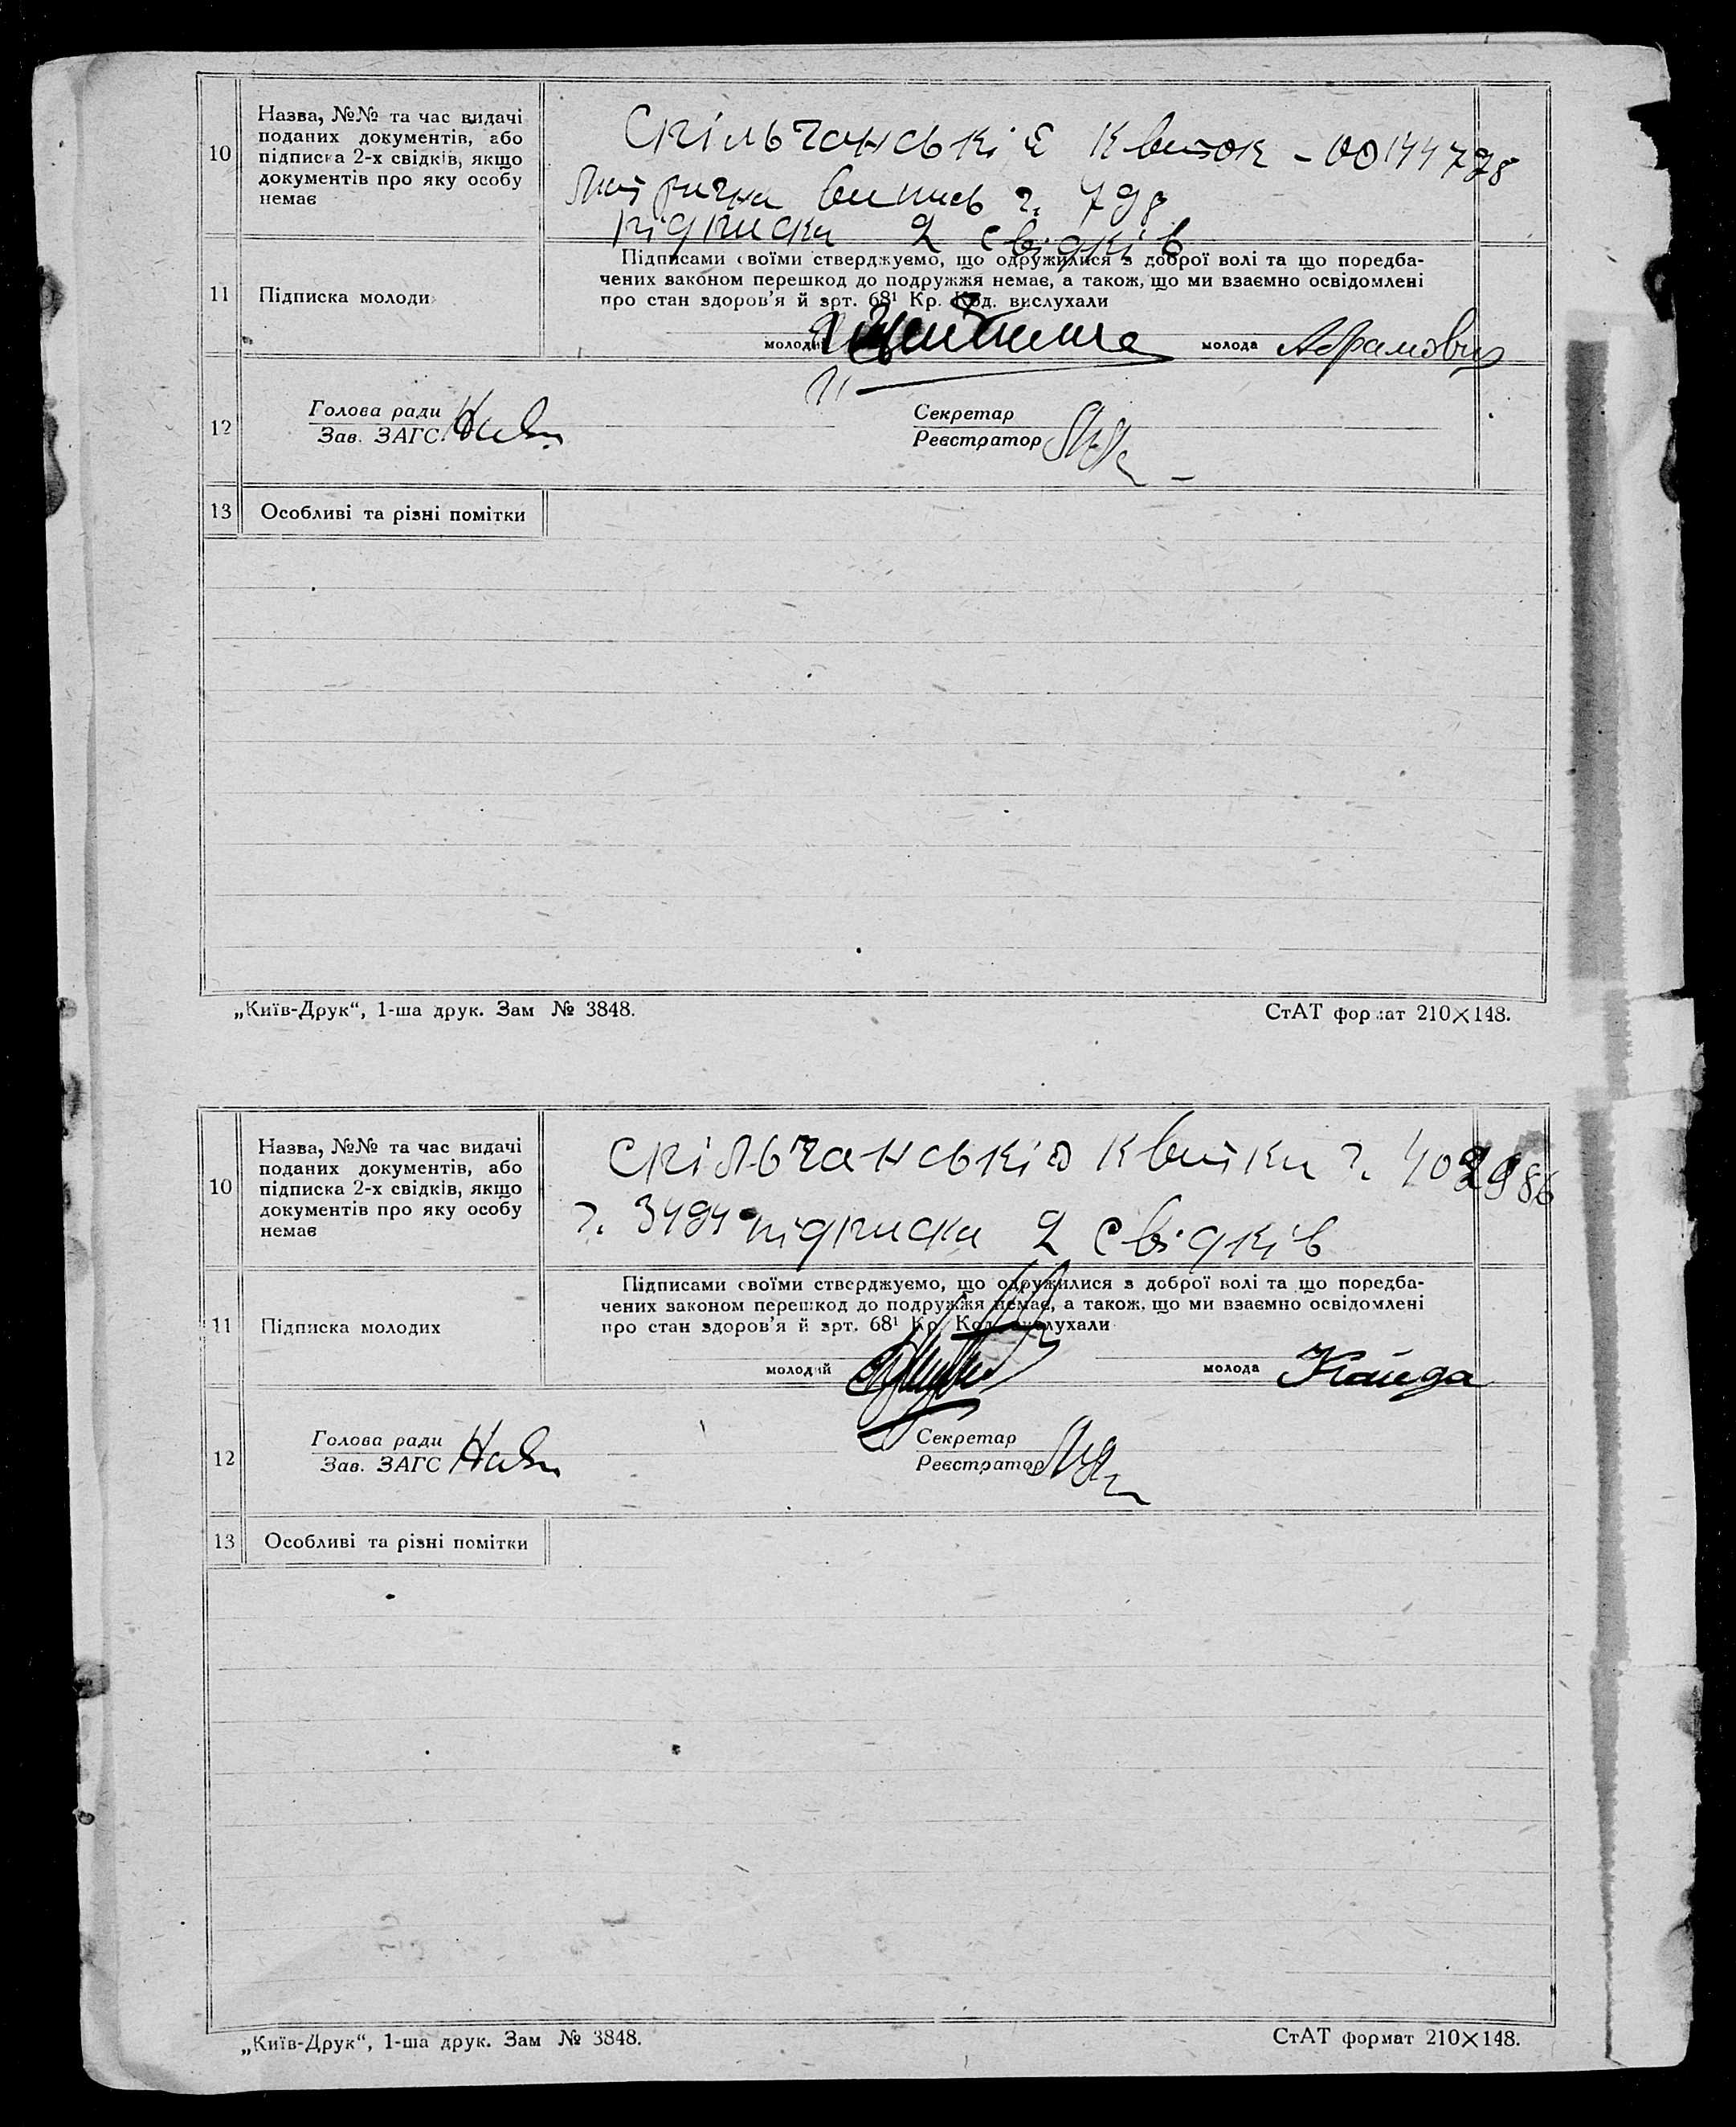 10
Назва, №№ та час видачі
поданих документів, або
підписка 2-х свідків, якщо
документів про яку особу
немає
Спільчанський Квиток – 00144798
Метрична випись ч. 798
підписки 2 свідків
11
Підписка молоди
Підписами своїми стверджуємо, що одружилися з доброї волі та що поредба-
чених законом перешкод до подружжя немає, а також, що ми взаємно освідомлені
про стан здоров'я й арт. 68¹ Кр. Код. вислухали
молодий
молода Абрамович
12
Голова ради
Зав. ЗАГС
Секретар
Реєстратор
13
Особливі та різні помітки
„Київ-Друк“, 1-ша друк. Зам № 3848.
СтАТ формат 210×148.
10
Назва, №№ та час видачі
поданих документів, або
підписка 2-х свідків, якщо
документів про яку особу
немає
спільчанські квитки ч.
ч. 3494 підписки 2 свідків
11
Підписка молодих
Підписами своїми стверджуємо, що одружилися з доброї волі та що поредба-
чених законом перешкод до подружжя немає, а також, що ми взаємно освідомлені
про стан здоров'я й арт. 68¹ Кр. Код. вислухали
молодий
молода Кайда
12
Голова ради
Зав. ЗАГС
Секретар
Реєстратор
13
Особливі та різні помітки
„Київ-Друк“, 1-ша друк. Зам № 3848.
СтАТ формат 210×148.